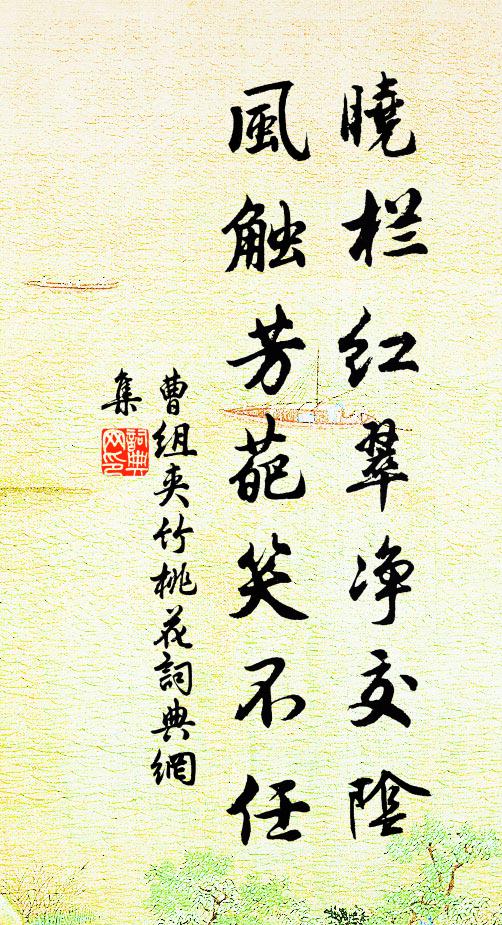 曉栏红翠净交陰
風触芳葩笑不任
曹组夹竹桃花詞典網
集
詞典